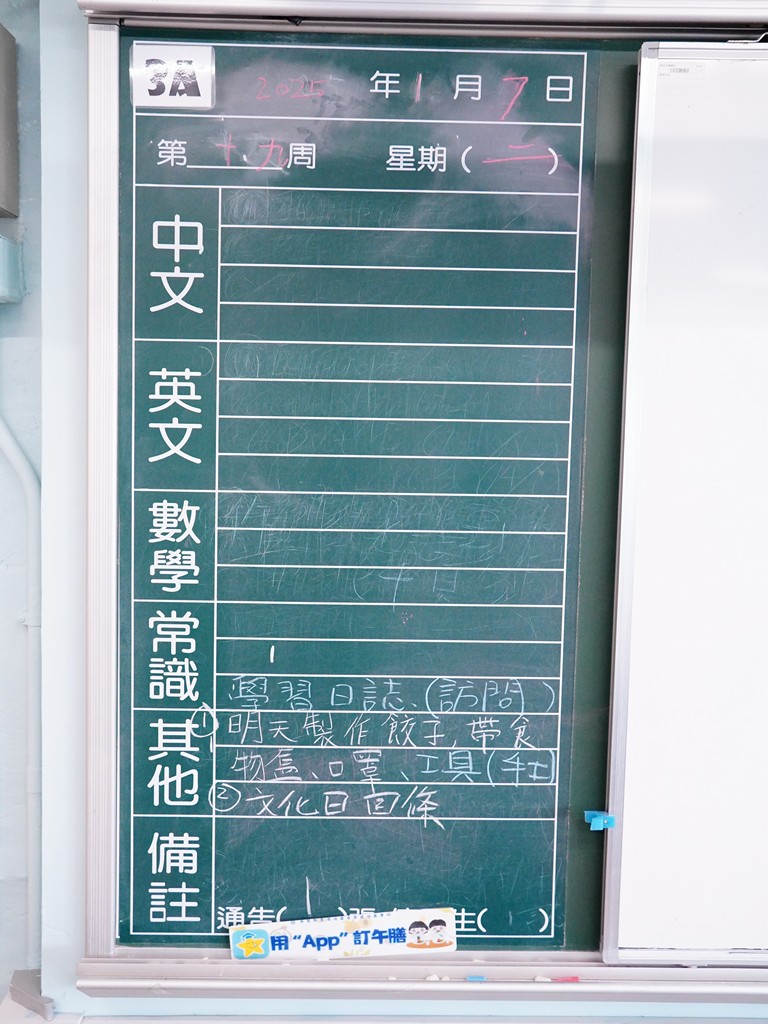 3A 2025年1月7日
第十九周 星期(二)
中文
英文
數學
常識
學習日誌、(訪問)
其他
①明天製作餃子,帶食
物盒、口罩、工具(手工)
②文化日回條
備註
通告(1)張 生( )
用“App”訂午膳